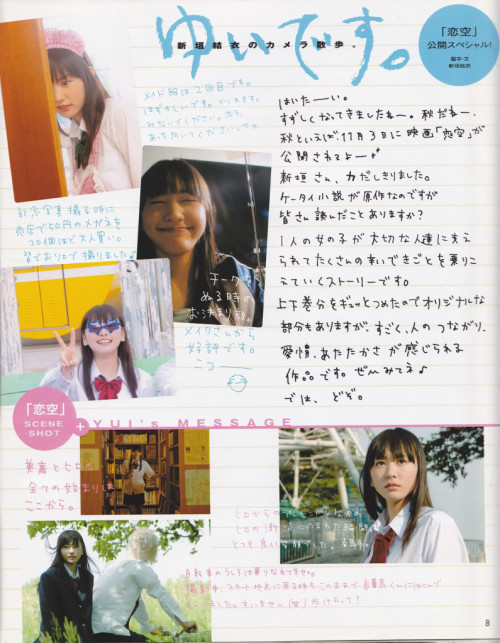 ゆいです。
新垣結衣のカメラ散歩。
「恋空」
公開スペシャル!
メイド服は2回目です。
はいたーい。
すずしくなってきましたねー。秋だねー。
秋といえば11月3日に映画「恋空」が
公開されるよー
新垣さん、力だしきりました。
ケータイ小説が原作なのですが
皆さん読んだことありますか?
1人の女の子が大切な人達に支え
られてたくさんの辛いできごとを乗りこ
えていくストーリーです。
上下巻分をギュッとつめたのでオリジナルな
部分もありますが、すごく、人のつながり、
愛情、あたたかさが感じられる
作品です。ぜひみてネ♪
では、どぞ。
記念写真撮る時に
売店で50円のメガネを
20個ほど大人買い。
皆でおソロで撮りました♪
チークを
ぬる時の
お決まり顔。
メイクさんから
好評です。
ニコー
「恋空」
SCENE
SHOT
+YUI's MESSAGE
美嘉とヒロの
全ての始まりは
ここから。
8